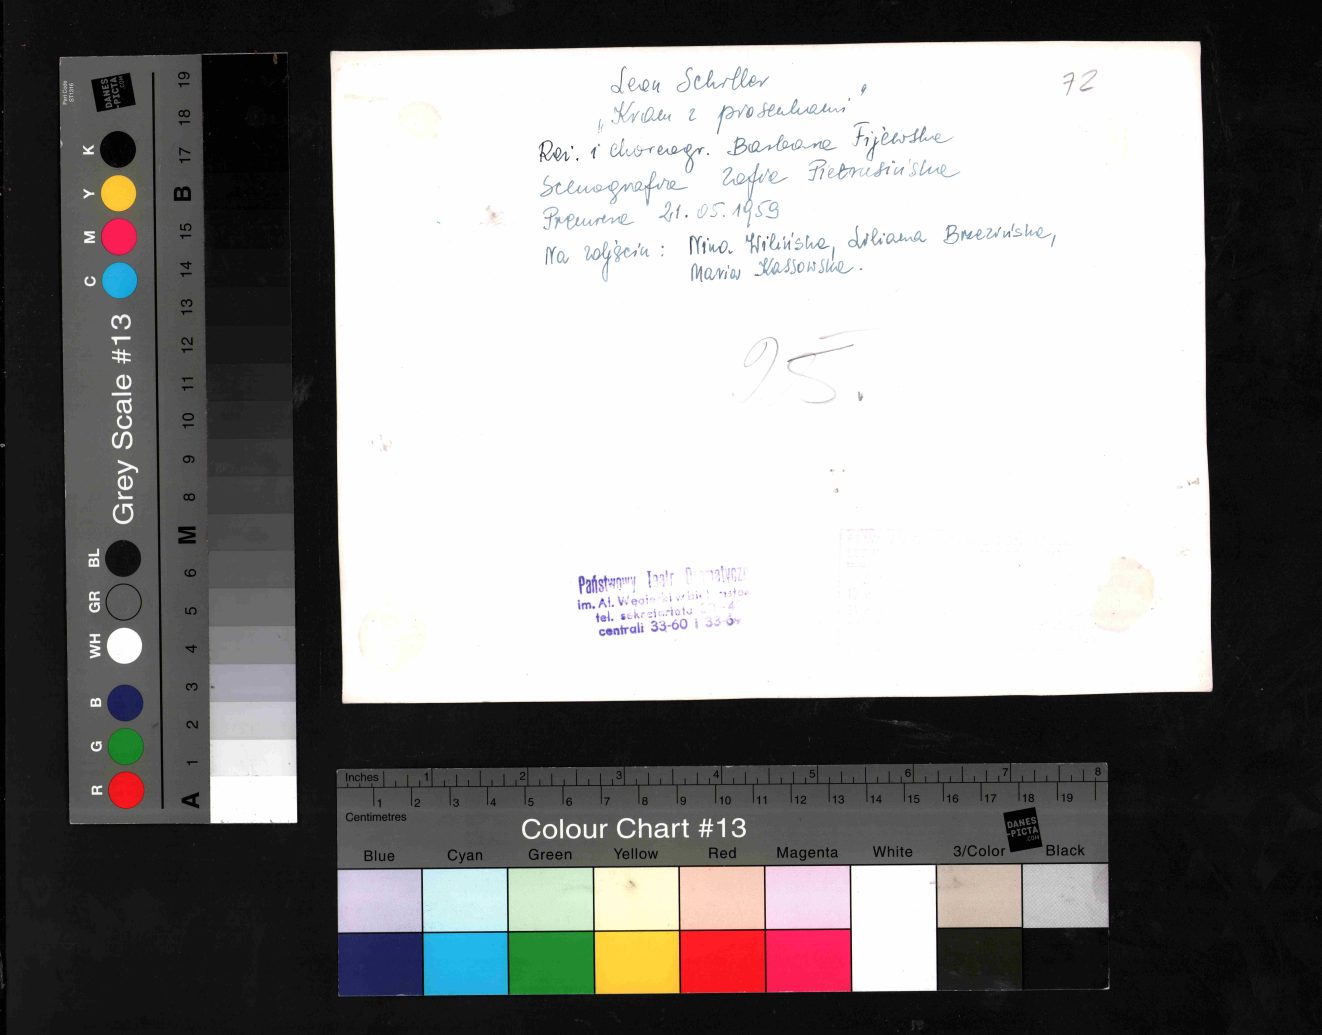 72
Leon Schiller
„Kram z piosenkami"
Reż. i choreogr. Barbara Fijewska
Scenografia Zofia Pietrusińska
Premiera 21.05.1959
Na zdjęciu: Nina Wilińska, Liliana Brzezińska,
Maria Kassowska.
25.
Państwowy Teatr
im. Al. Węgierki w
tel. sekretariatu
centrali 33-60 i 33-64
Part Code
ST1316
DANES
-PICTA
.COM
Grey Scale #13
R G B WH GR BL C M Y K
A 1 2 3 4 5 6 M 8 9 10 11 12 13 14 15 B 17 18 19
Inches 1 2 3 4 5 6 7 8
1 2 3 4 5 6 7 8 9 10 11 12 13 14 15 16 17 18 19
Centimetres
Colour Chart #13
DANES
-PICTA
.COM
Blue Cyan Green Yellow Red Magenta White 3/Color Black